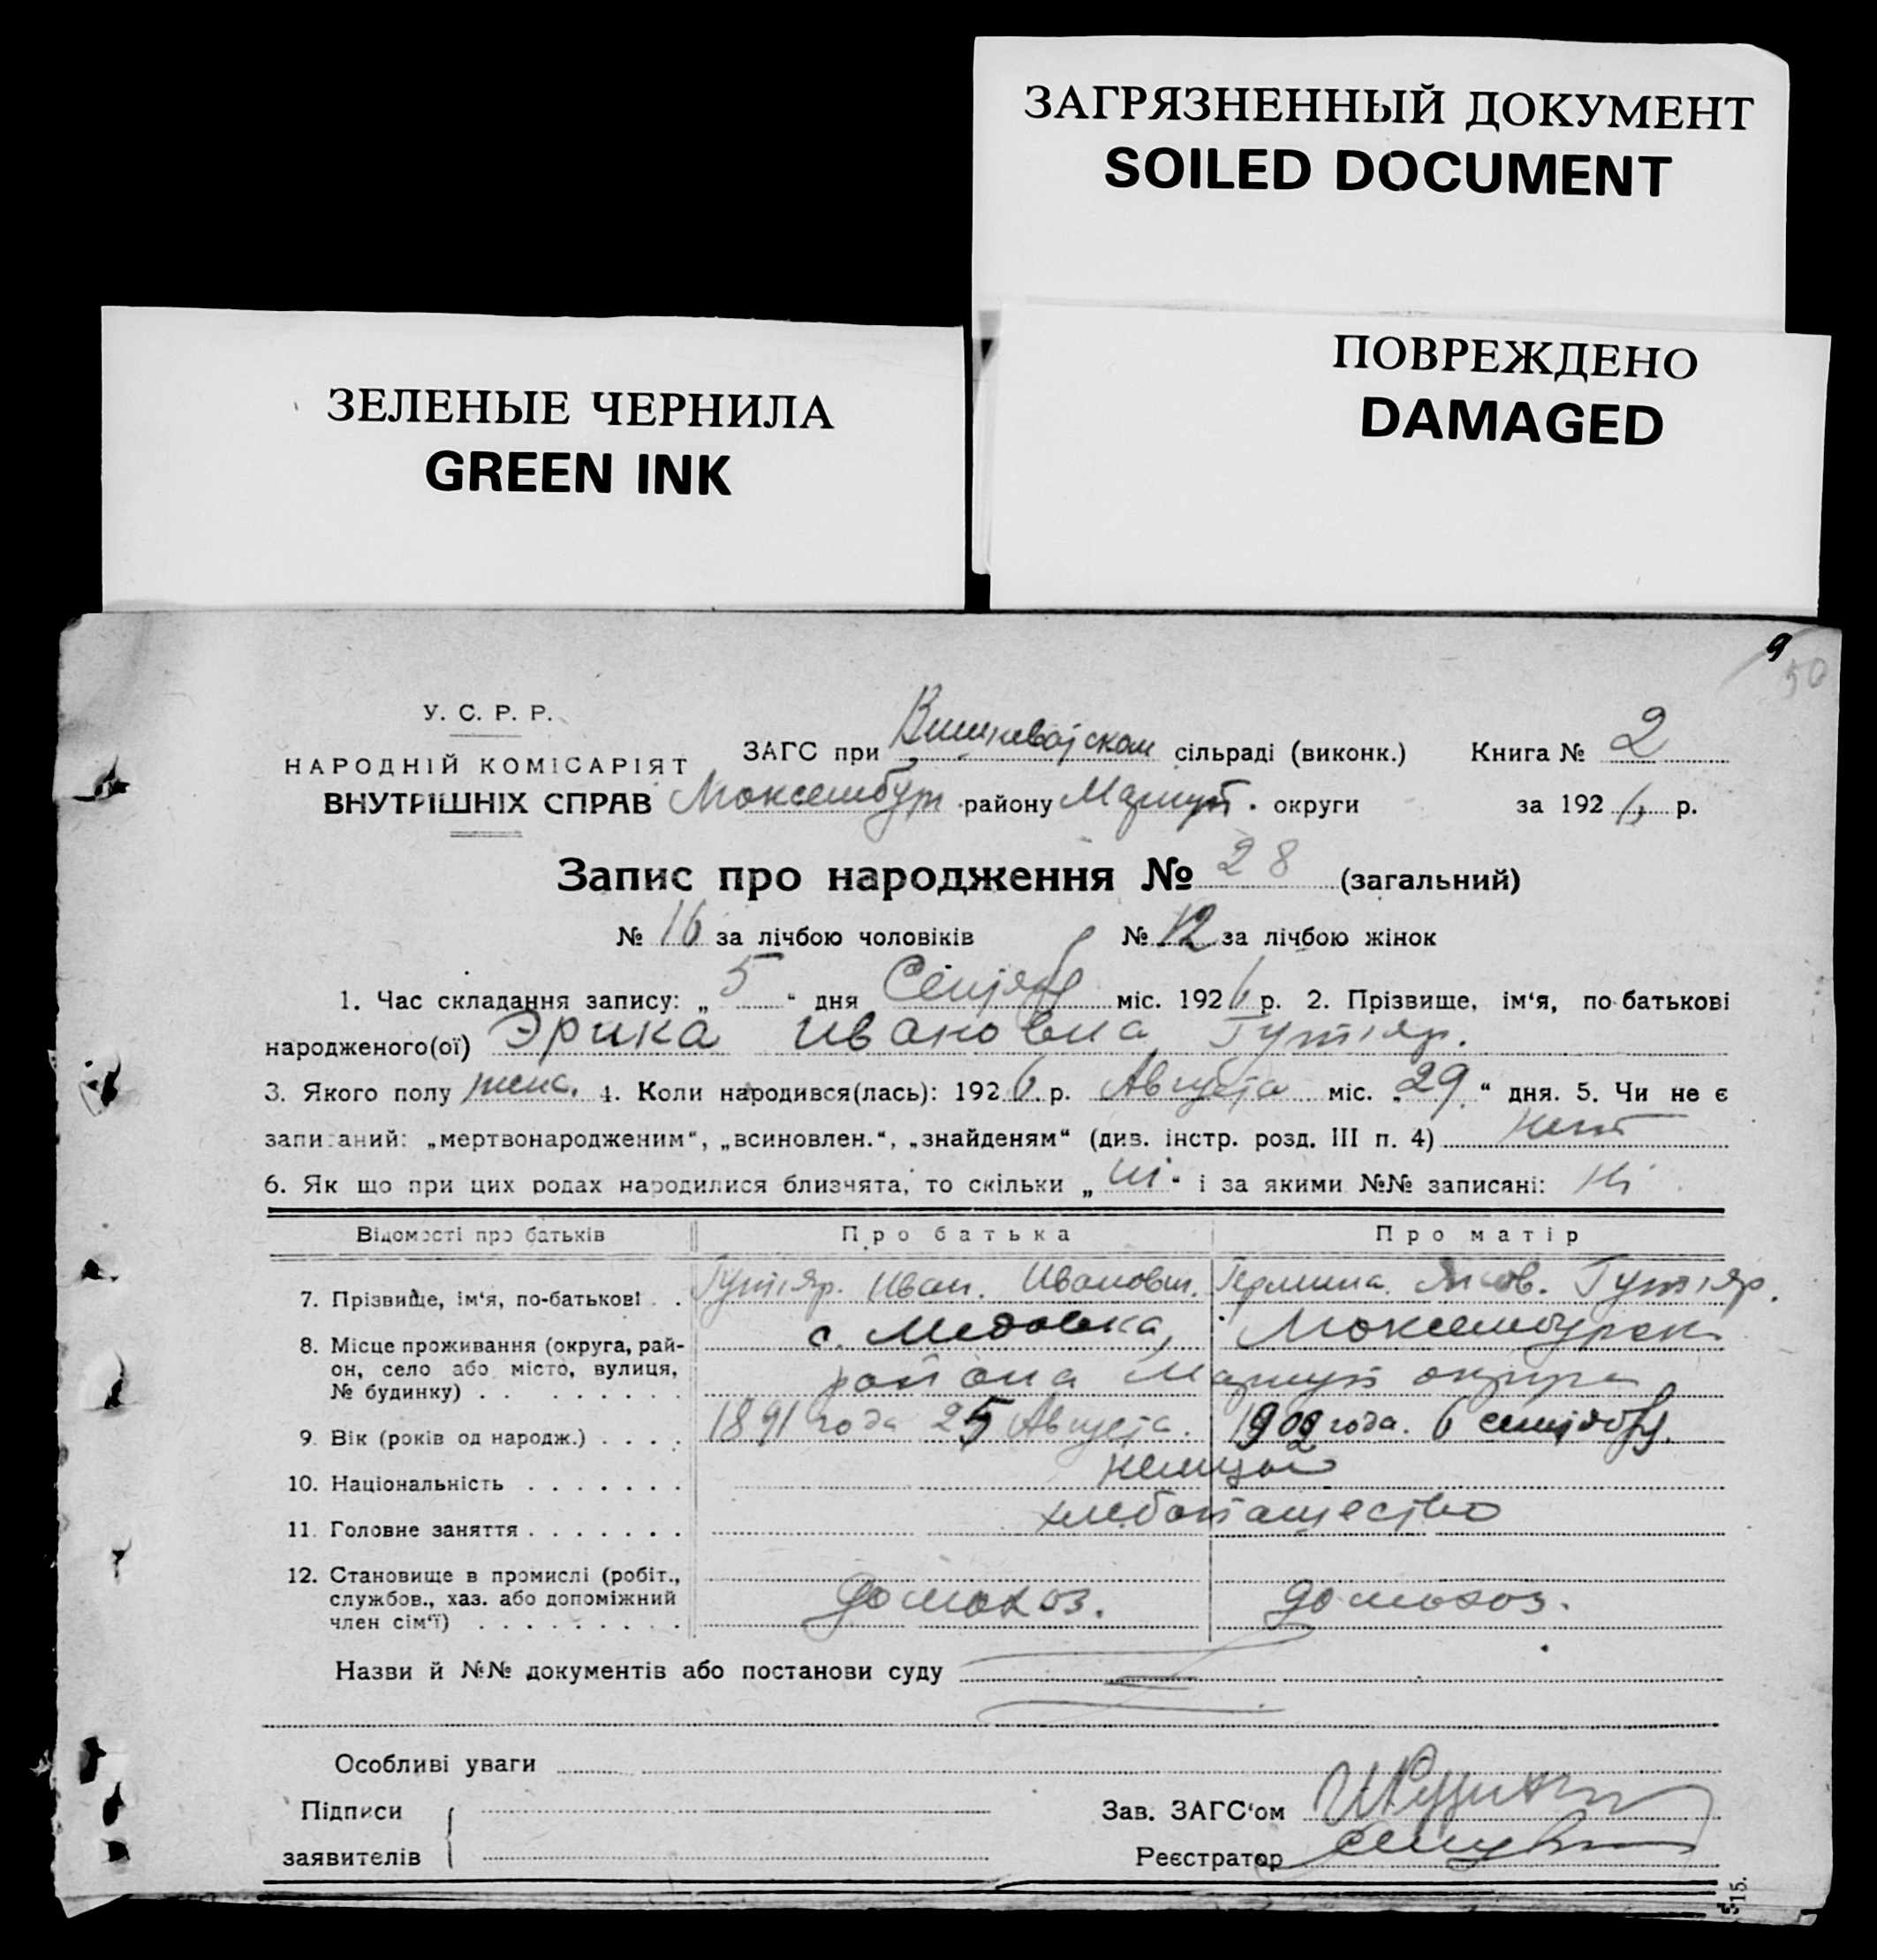 ЗАГРЯЗНЕННЫЙ ДОКУМЕНТ
SOILED DOCUMENT
ПОВРЕЖДЕНО
DAMAGED
ЗЕЛЕНЫЕ ЧЕРНИЛА
GREEN INK
9
50
У. С. Р. Р.
НАРОДНІЙ КОМІСАРІЯТ
ВНУТРІШНІХ СПРАВ
ЗАГС при сільраді (виконк.) Книга № 2
району Мариуп. округи за 1926 р.
Запис про народження № 28 (загальний)
№ 16 за лічбою чоловіків № 12 за лічбою жінок
1. Час складання запису: „5“ дня Сентяб міс. 1926 р. 2. Прізвище, ім‘я, по-батькові
народженого(ої) Эрика Ивановна Гутяр.
3. Якого полу женс. 4. Коли народився(лась): 1926 р. Августа міс. „29“ дня. 5. Чи не є
записаний: „мертвонародженим“, „всиновлен.“, „знайденям“ (див. інстр. розд. III п. 4) нет
6. Як що при цих родах народилися близнята, то скільки „ні“ і за якими №№ записані: Ні
Відомості про батьків Про батька Про матір
7. Прізвище, ім‘я, по-батькові . . Гутяр. Иван. Иванович. Гермина. Яков. Гутяр.
8. Місце проживання (округа, рай-
он, село або місто, вулиця,
№ будинку) . . . . . . . . .
с. Медовка,
района Мариуп округа
9. Вік (років од народж.) . . . . 1891 года 25 Августа. 1902 года. 6 сентября.
10. Національність . . . . . . . немцы
11. Головне заняття . . . . . . . хлебопашество
12. Становище в промислі (робіт.,
службов., хаз. або допоміжний
член сім‘ї) . . . . . . . . . домохоз. домохоз.
Назви й №№ документів або постанови суду
Особливі уваги
Підписи
заявителів
Зав. ЗАГС‘ом
Реєстратор
15.